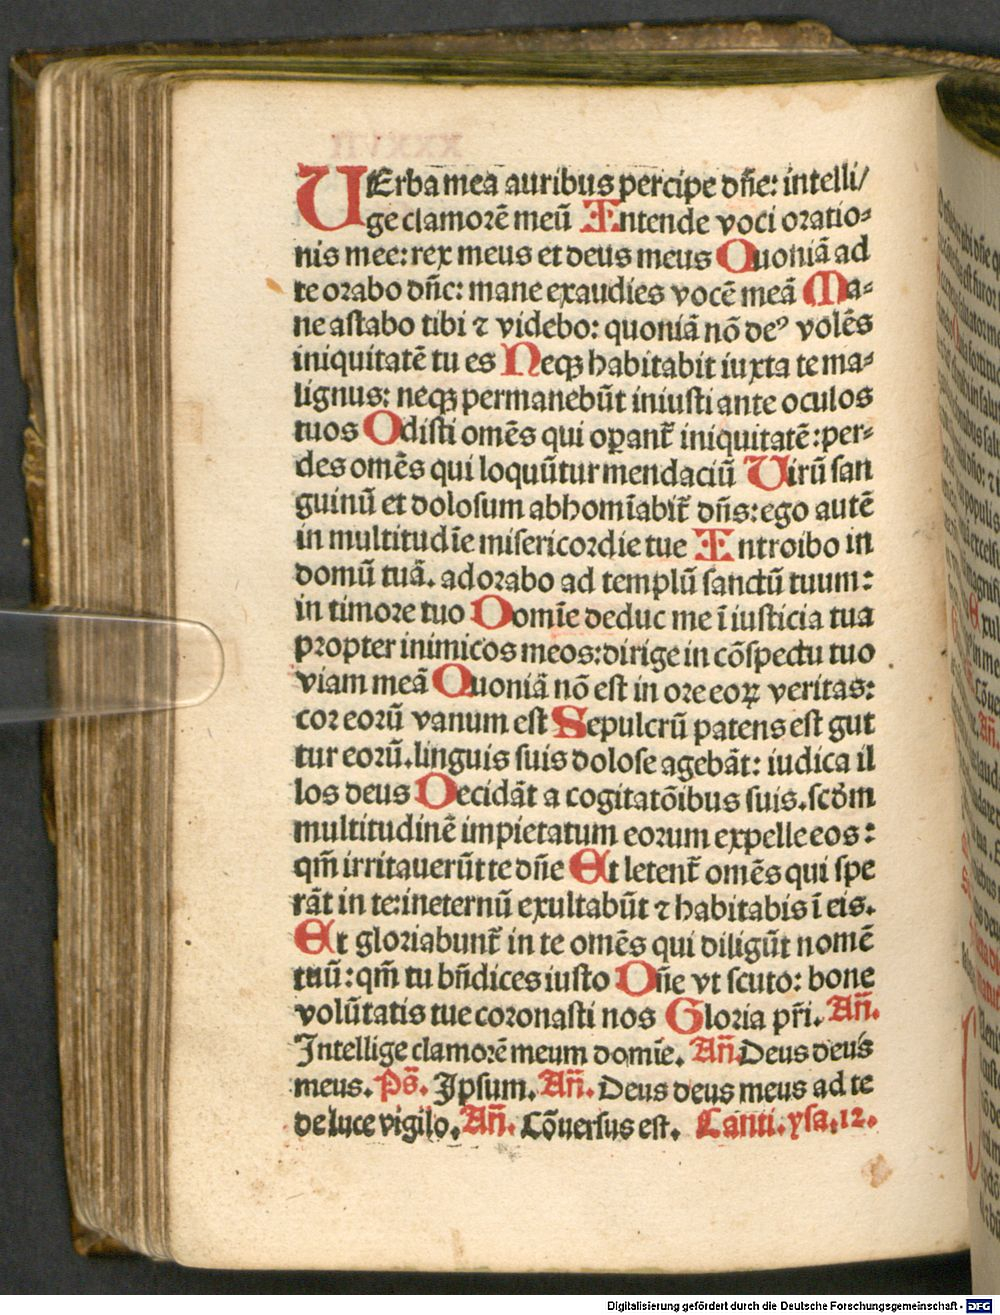 UErba mea auribus percipe dñe: intelli/
ge clamorẽ meũ Intende voci oratio⸗
nis mee: rex meus et deus meus Quoniã ad
te orabo dñe: mane exaudies vocẽ meã Ma⸗
ne astabo tibi ⁊ videbo: quoniã nõ deꝰ volẽs
iniquitatẽ tu es Neqꝫ habitabit iuxta te ma⸗
lignus: neqꝫ permanebũt iniusti ante oculos
tuos Odisti omẽs qui oꝑant᷑ iniquitatẽ: per⸗
des omẽs qui loquũtur mendaciũ Uirũ san
guinũ et dolosum abhomĩabit᷑ dñs: ego autẽ
in multitudĩe misericordie tue Introibo in
domũ tuã. adorabo ad templũ sanctũ tuum:
in timore tuo Domĩe deduc me ĩ iusticia tua
propter inimicos meos: dirige in cõspectu tuo
viam meã Quoniã nõ est in ore eoꝝ veritas:
cor eorũ vanum est Sepulcrũ patens est gut
tur eorũ. linguis suis dolose agebãt: iudica il
los deus Decidãt a cogitatõibus suis. scd̃m
multitudinẽ impietatum eorum expelle eos:
qm̃ irritauerũt te dñe Et letent᷑ omẽs qui spe
rãt in te: in eternũ exultabũt ⁊ habitabis ĩ eis.
Et gloriabunt᷑ in te omẽs qui diligũt nomẽ
tuũ: qm̃ tu bñdices iusto Dñe vt scuto: bone
volũtatis tue coronasti nos Gloria pr̃i. Añ.
Intellige clamorẽ meum domĩe. Añ. Deus deus
meus. Ps̃. Ipsum. Añ. Deus deus meus ad te
de luce vigilo. Añ. Cõuersus est. Canti. ysa. 12.
Digitalisierung gefördert durch die Deutsche Forschungsgemeinschaft - DFG